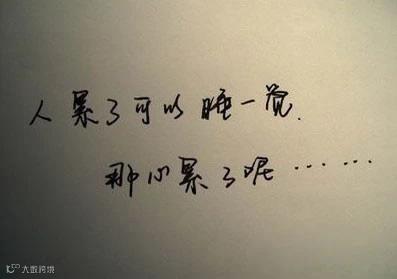 人累了可以睡一觉.
那心累了呢……
大数跨境